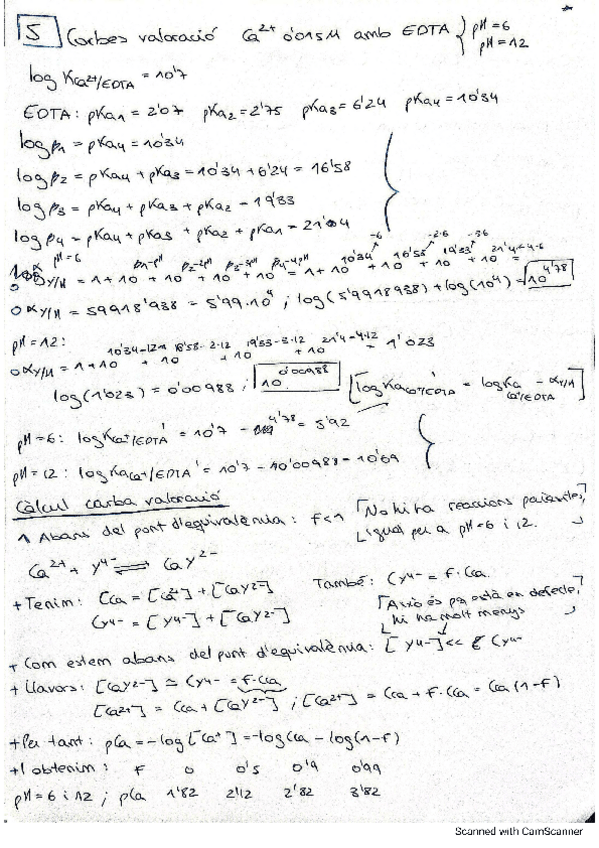 5 Corbes valoració Ca²⁺ 0'015M amb EDTA { pH=6
pH=12
log K Ca²⁺/EDTA = 10'7
EDTA: pKa1 = 2'07 pKa2 = 2'75 pKa3 = 6'24 pKa4 = 10'34
log β1 = pKa4 = 10'34
log β2 = pKa4 + pKa3 = 10'34 + 6'24 = 16'58
log β3 = pKa4 + pKa3 + pKa2 = 19'33
log β4 = pKa4 + pKa3 + pKa2 + pKa1 = 21'4
pH=6
αY/H = 1 + 10^(β1-pH) + 10^(β2-2pH) + 10^(β3-3pH) + 10^(β4-4pH) = 1 + 10^(10'34-6) + 10^(16'58-2·6) + 10^(19'33-3·6) + 10^(21'4-4·6) =
αY/H = 59918'938 = 5'99·10⁴ ; log(5'9918938) + log(10⁴) = 10^4'78
pH=12:
αY/H = 1 + 10^(10'34-12) + 10^(16'58-2·12) + 10^(19'33-3·12) + 10^(21'4-4·12) = 1'023
log(1'023) = 0'00988 ; 10^0'00988 [log K Ca²⁺/EDTA' = log K Ca²⁺/EDTA - αY/H]
pH=6: log K Ca²⁺/EDTA' = 10'7 - 4'78 = 5'92
pH=12: log K Ca²⁺/EDTA' = 10'7 - 10'00988 = 10'69
Càlcul corba valoració
1 Abans del punt d'equivalència: f<1 [No hi ha reaccions paràsites,
igual per a pH=6 i 12.]
Ca²⁺ + Y⁴⁻ ⇌ CaY²⁻
+ Tenim: Cca = [Ca²⁺] + [CaY²⁻] També: Cy⁴⁻ = f·Cca
Cy⁴⁻ = [Y⁴⁻] + [CaY²⁻] [Això és pq està en defecte,
hi ha molt menys]
+ Com estem abans del punt d'equivalència: [Y⁴⁻] << Cy⁴⁻
+ Llavors: [CaY²⁻] ≃ Cy⁴⁻ = f·Cca
[Ca²⁺] = Cca + [CaY²⁻] ; [Ca²⁺] = Cca + f·Cca = Cca(1-f)
+ Per tant: pCa = -log[Ca²⁺] = -log Cca - log(1-f)
+ I obtenim: f 0 0'5 0'9 0'99
pH=6 i 12; pCa 1'82 2'12 2'82 3'82
Scanned with CamScanner